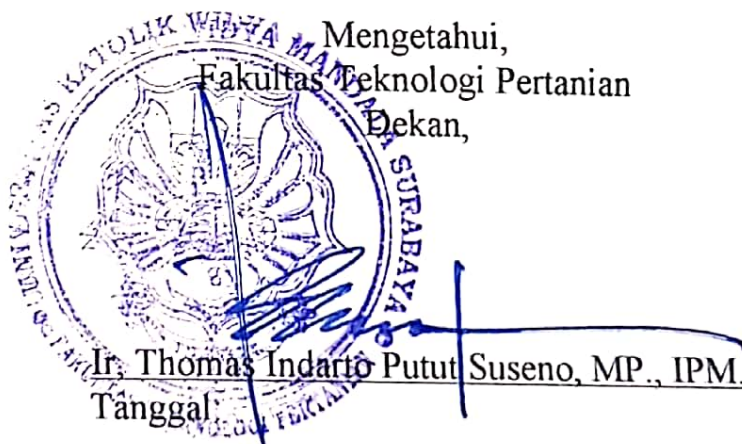 Mengetahui,
Fakultas Teknologi Pertanian
Dekan,
UNIVERSITAS KATOLIK WIDYA MANDALA SURABAYA
Ir, Thomas Indarto Putut Suseno, MP., IPM.
Tanggal